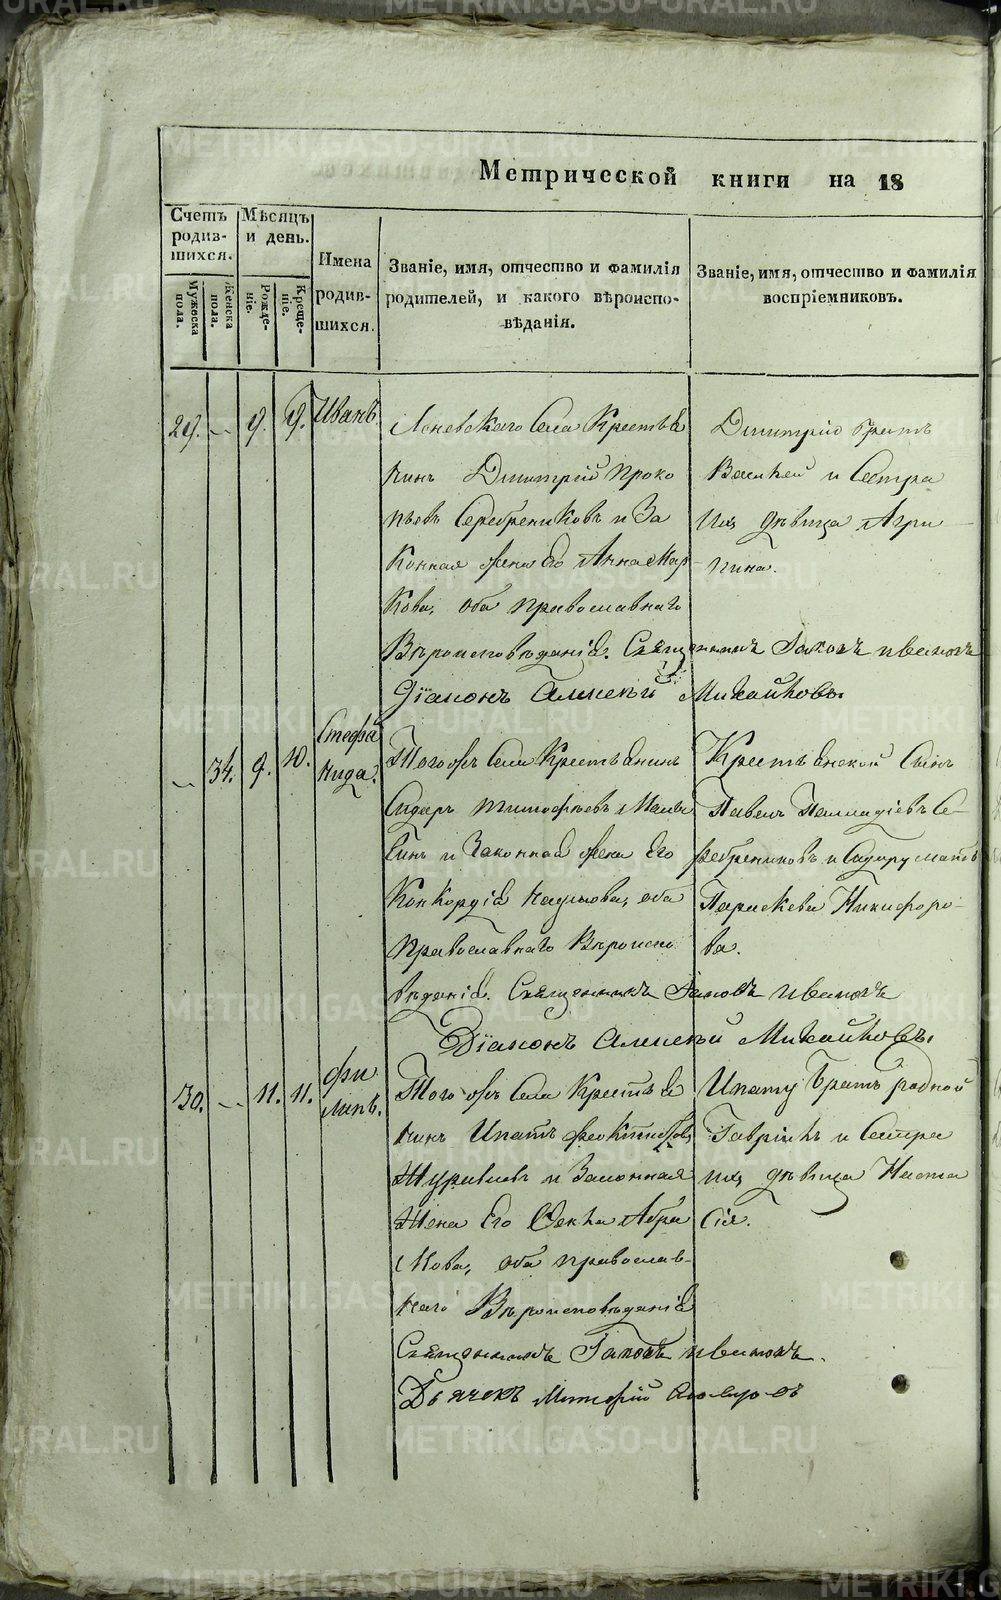 Метрической книги на 18
Счетъ родив-шихся.
Мѣсяцъ и день.
Имена родив-шихся.
Званіе, имя, отчество и фамилія родителей, и какого вѣроиспо-вѣданія.
Званіе, имя, отчество и фамилія воспріемниковъ.
Мужеска пола.
Женска пола.
Рожде-ніе.
Креще-ніе.
29. — 9. 9. Иванъ.
Леневскаго Села Крестья
нинъ Дмитрій Проко
пьевъ Серебрениковъ и За
конная жена Его Анна Мар
кова, оба православнаго
Вѣроисповѣданія. Священникъ Іаковъ
Діаконъ Алексѣй Михайловъ.
Дмитрію братъ
Василей и Сестра
ихъ дѣвица Агри
пина.
— 34. 9. 10. Стефа
нида.
Тогожъ Села Крестьянинъ
Сидоръ Тимофѣевъ
и Законная жена Его
Конкордія Наумова, оба
православнаго Вѣроиспо
вѣданія. Священникъ Іаковъ
Діаконъ Алексѣй Михайловъ.
Крестьянской Сынъ
Павелъ Палладіевъ Се
ребрениковъ и Сидору мать
Параскева Никифоро-
ва.
30. — 11. 11. Фи
липъ.
Тогожъ Села Крестья
нинъ Ипатъ Феоктистовъ
Журавлевъ и Законная
Жена Его Фекла Абра
мова, оба православ-
наго Вѣроисповѣданія
Священникъ Іаковъ
Дьячекъ
Ипату братъ родной
Гаврилъ и Сестра
ихъ дѣвица Наста
сія.
METRIKI.GASO-URAL.RU